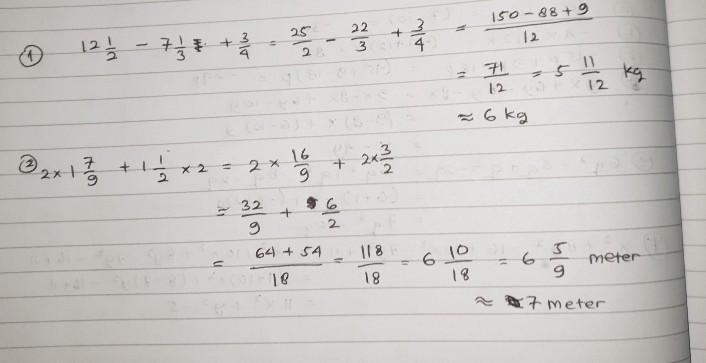 ① 12 1/2 − 7 1/3 + 3/4 = 25/2 − 22/3 + 3/4 = (150 − 88 + 9)/12
= 71/12 = 5 11/12 kg
≈ 6 kg
② 2 × 1 7/9 + 1 1/2 × 2 = 2 × 16/9 + 2 × 3/2
= 32/9 + 6/2
= (64 + 54)/18 = 118/18 = 6 10/18 = 6 5/9 meter
≈ 7 meter